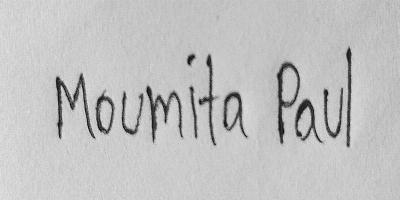 Moumita Paul